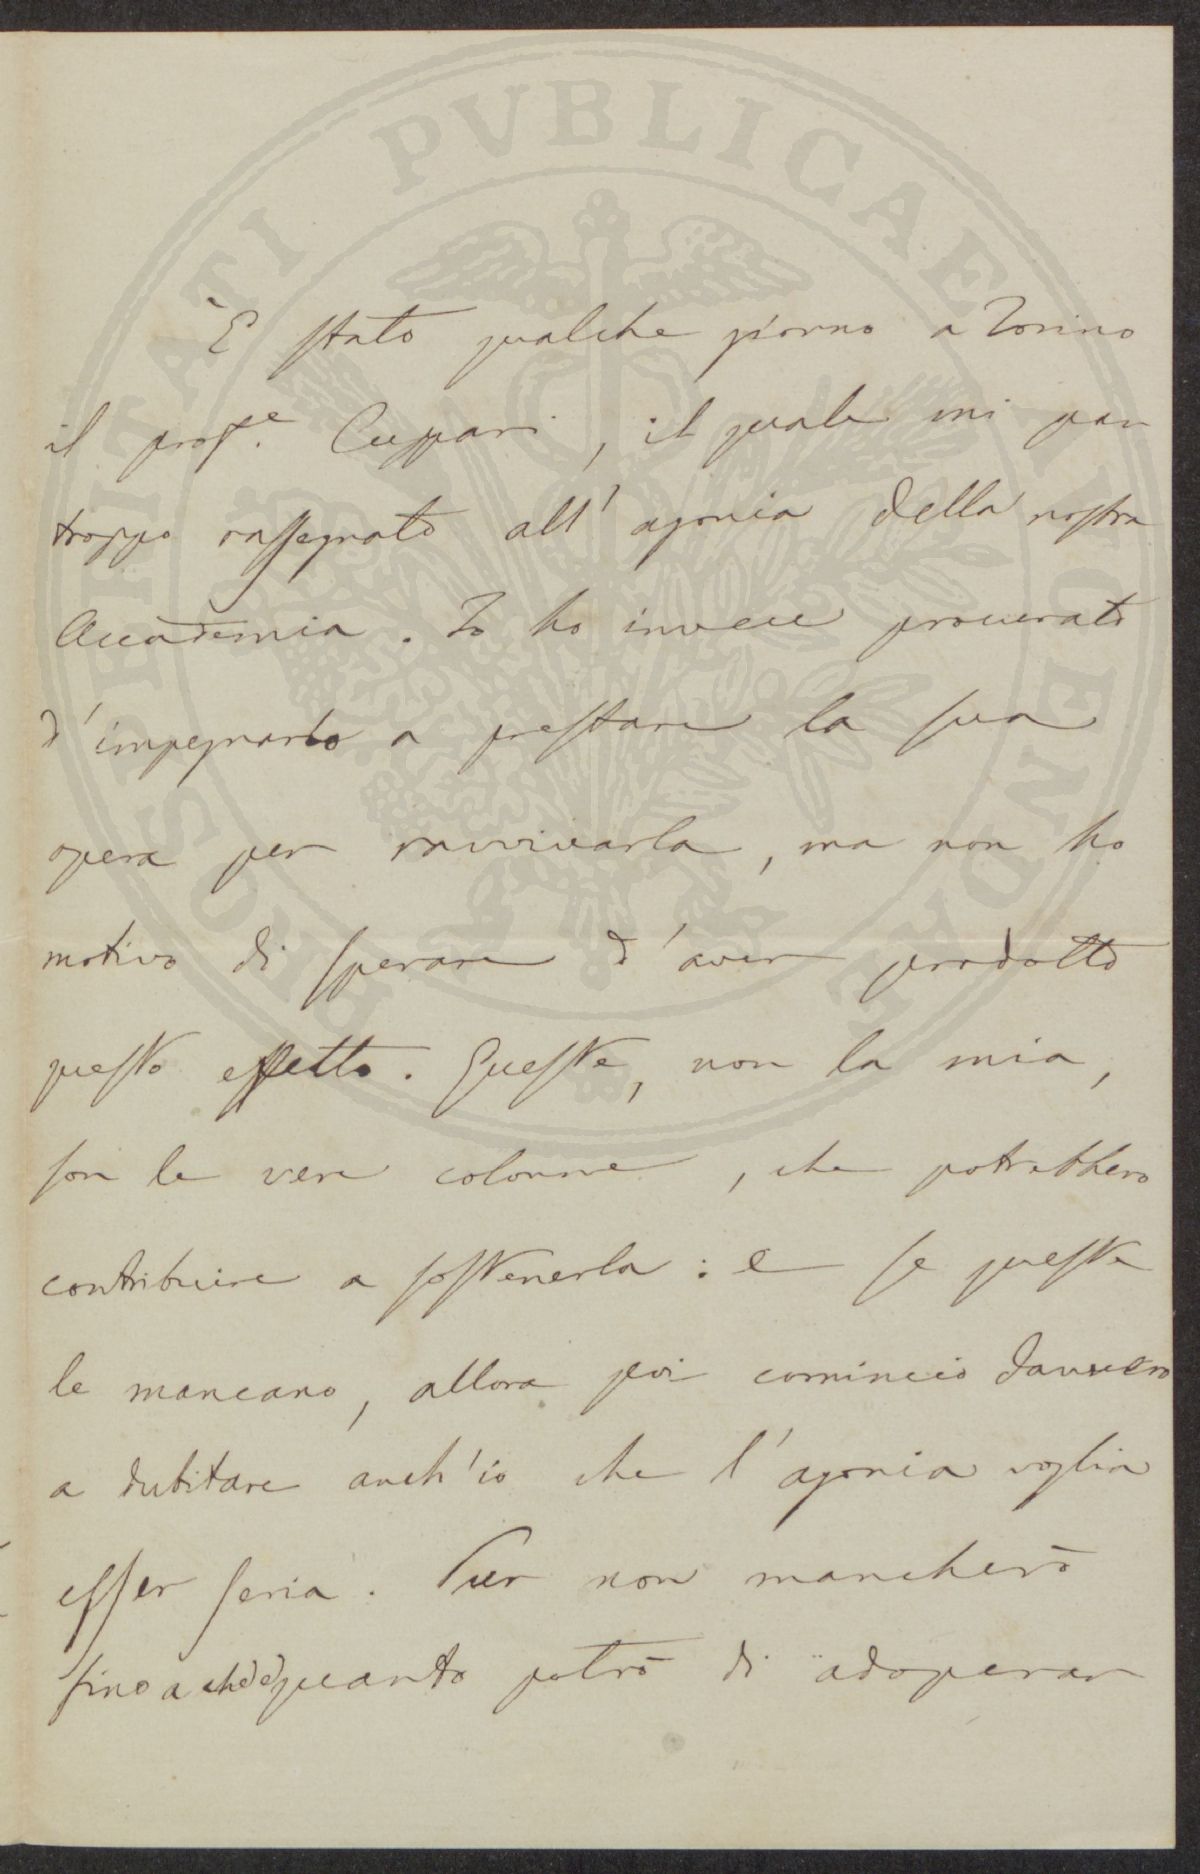 PROSPERITATI PVBLICAE AVGENDAE
È stato qualche giorno a Torino
il prof.e Cuppari, il quale mi par
troppo rassegnato all'agonia della nostra
Accademia. Io ho invece procurato
d'impegnarlo a prestare la sua
opera per ravvivarla, ma non ho
motivo di sperare d'aver prodotto
questo effetto. Queste, non la mia,
son le vere colonne, che potrebbero
contribuire a sostenerla: e se queste
le mancano, allora poi comincio davvero
a dubitare anch'io che l'agonia voglia
esser seria. Pur non mancherò
fino a che e quanto potrò di adoperar